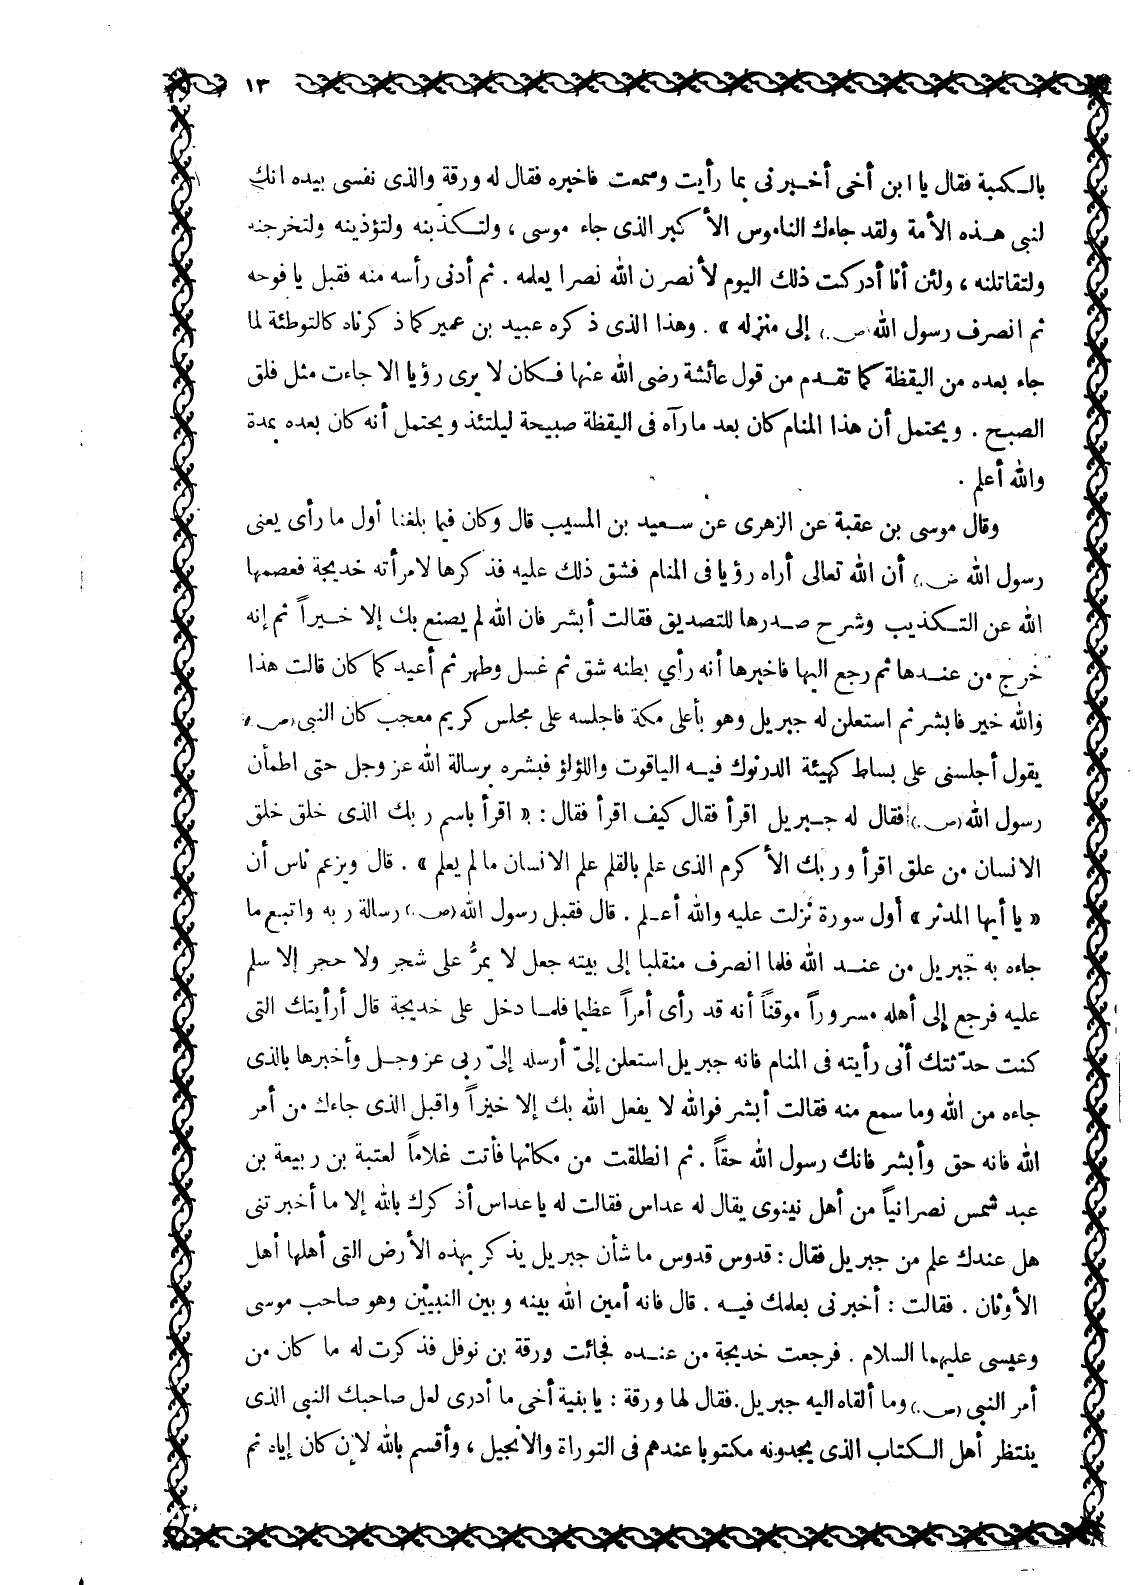 ١٣
بالكعبة فقال يا ابن أخى أخبرنى بما رأيت وسمعت فاخبره فقال له ورقة والذى نفسى بيده انك
لنبى هذه الأمة ولقد جاءك الناموس الأكبر الذى جاء موسى ، ولتكذبنه ولتؤذينه ولتخرجنه
ولتقاتلنه ، ولئن أنا أدركت ذلك اليوم لأنصرن الله نصرا يعلمه . ثم أدنى رأسه منه فقبل يافوخه
ثم انصرف رسول الله (ص.) إلى منزله » . وهذا الذى ذكره عبيد بن عمير كما ذكرناه كالتوطئة لما
جاء بعده من اليقظة كما تقدم من قول عائشة رضى الله عنها فكان لا يرى رؤيا الا جاءت مثل فلق
الصبح . ويحتمل أن هذا المنام كان بعد ما رآه فى اليقظة صبيحة ليلتئذ ويحتمل أنه كان بعده بمدة
والله أعلم .
وقال موسى بن عقبة عن الزهرى عن سعيد بن المسيب قال وكان فيما بلغنا أول ما رأى يعنى
رسول الله (ص.) أن الله تعالى أراه رؤيا فى المنام فشق ذلك عليه فذكرها لامرأته خديجة فعصمها
الله عن التكذيب وشرح صدرها للتصديق فقالت أبشر فان الله لم يصنع بك إلا خيراً ثم إنه
خرج من عندها ثم رجع اليها فاخبرها أنه رأي بطنه شق ثم غسل وطهر ثم أعيد كما كان قالت هذا
والله خير فابشر ثم استعلن له جبريل وهو بأعلى مكة فاجلسه على مجلس كريم معجب كان النبى (ص.)
يقول أجلسنى على بساط كهيئة الدرنوك فيه الياقوت واللؤلؤ فبشره برسالة الله عز وجل حتى اطمأن
رسول الله (ص.) فقال له جبريل اقرأ فقال كيف اقرأ فقال : « اقرأ باسم ربك الذى خلق خلق
الانسان من علق اقرأ وربك الأكرم الذى علم بالقلم علم الانسان ما لم يعلم » . قال ويزعم ناس أن
« يا أيها المدثر » أول سورة نزلت عليه والله أعلم . قال فقبل رسول الله (ص.) رسالة ربه واتبع ما
جاءه به جبريل من عند الله فلما انصرف منقلبا إلى بيته جعل لا يمرُّ على شجر ولا حجر إلا سلم
عليه فرجع إلى أهله مسروراً موقناً أنه قد رأى أمراً عظيما فلما دخل على خديجة قال أرأيتك التى
كنت حدّثتك أنى رأيته فى المنام فانه جبريل استعلن إلىّ أرسله إلىّ ربى عز وجل وأخبرها بالذى
جاءه من الله وما سمع منه فقالت أبشر فوالله لا يفعل الله بك إلا خيراً واقبل الذى جاءك من أمر
الله فانه حق وأبشر فانك رسول الله حقاً . ثم انطلقت من مكانها فأتت غلاماً لعتبة بن ربيعة بن
عبد شمس نصرانياً من أهل نينوى يقال له عداس فقالت له يا عداس أذكرك بالله إلا ما أخبرتنى
هل عندك علم من جبريل فقال : قدوس قدوس ما شأن جبريل يذكر بهذه الأرض التى أهلها أهل
الأوثان . فقالت : أخبرنى بعلمك فيه . قال فانه أمين الله بينه وبين النبيين وهو صاحب موسى
وعيسى عليهما السلام . فرجعت خديجة من عنده فجائت ورقة بن نوفل فذكرت له ما كان من
أمر النبى (ص.) وما ألقاه اليه جبريل. فقال لها ورقة : يا بنية أخى ما أدرى لعل صاحبك النبى الذى
ينتظر أهل الكتاب الذى يجدونه مكتوبا عندهم فى التوراة والانجيل ، وأقسم بالله لإن كان إياه ثم